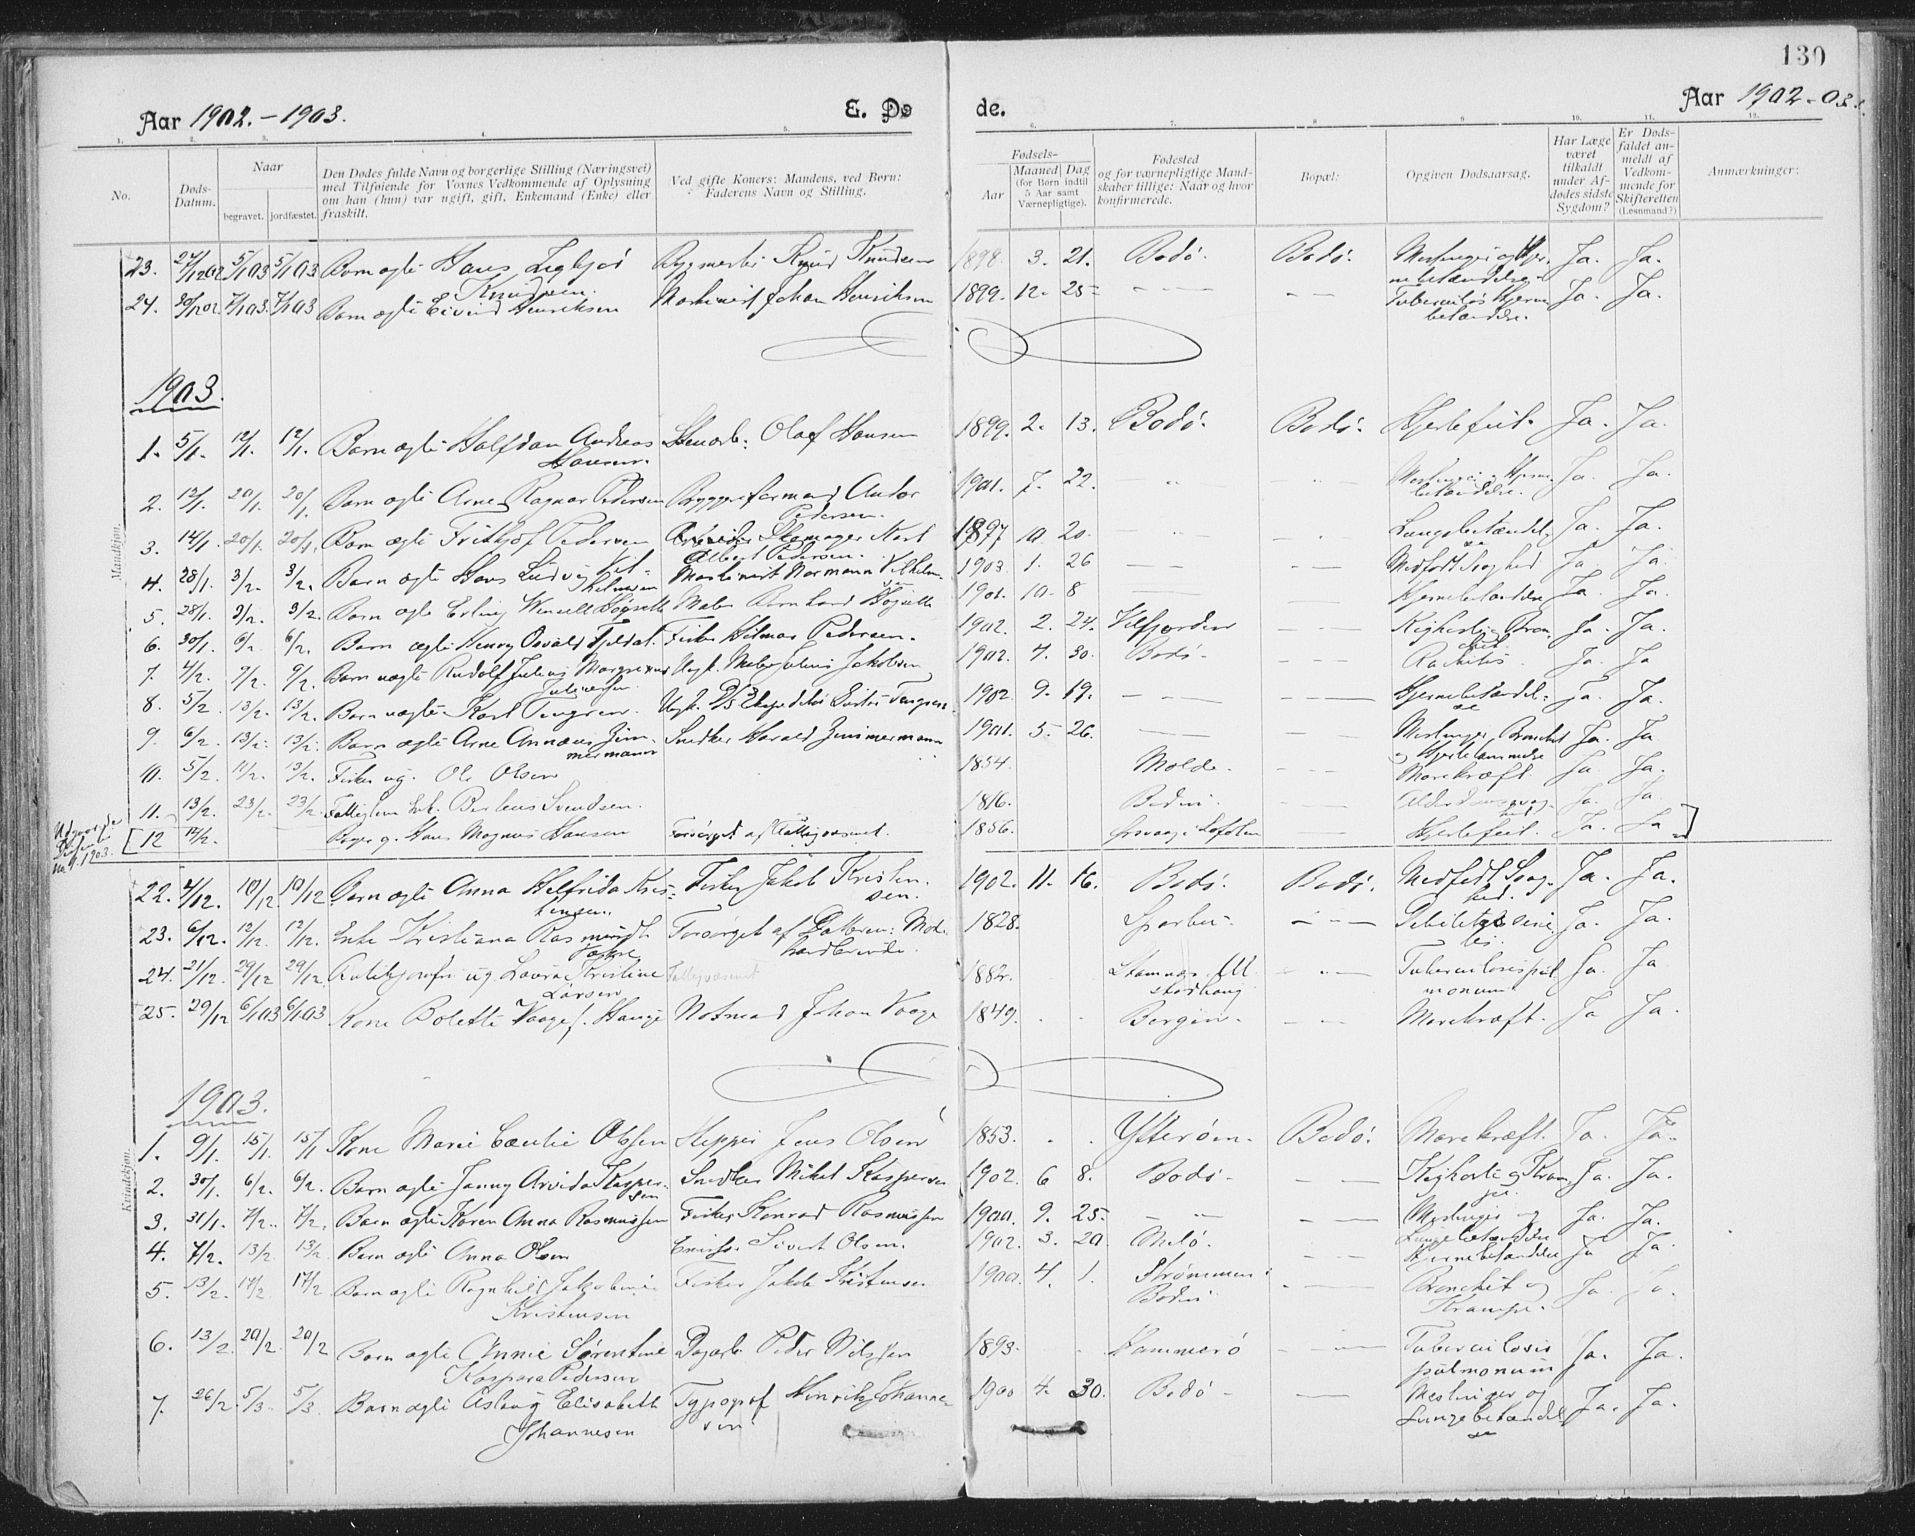 130
Aar 1902.-1903. E. Dø de. Aar 1902-03.
1. 2. 3. 4. 5. 6. 7. 8 9 10. 11. 12.
No. Døds-Datum. Naar begravet. jordfæstet. Den Dødes fulde Navn og borgerlige Stilling (Næringsvei) med Tilføiende for Voxnes Vedkommende af Oplysning om han (hun) var ugift, gift, Enkemand (Enke) eller fraskilt. Ved gifte Koner: Mandens, ved Børn: Faderens Navn og Stilling. Fødsels- Aar Maaned Dag (for Børn indtil 5 Aar samt Værnepligtige). Fødested og for værnepligtige Mandskaber tillige: Naar og hvor konfirmerede. Bopæl: Opgiven Dødsaarsag. Har Læge været tilkaldt under Afdødes sidste Sygdom? Er Dødsfaldet anmeldt af Vedkommende for Skifteretten (Lesnmand?) Anmærkninger:
Mandkjøn.
23. 27/12 02 5/1 03 5/1 03 Barn ægte Hans Knudsen. Knud Knudsen 1898. 3. 21. Bodø. Bodø. Meslinger og Hjernebetændelse Ja. Ja.
24. 30/12 02. 7/1 03. 7/1 03 Barn ægte Eivind Henriksen Maskinist Johan Henriksen 1899. 12. 25 - - - - - Tuberculøs Hjernebetændelse. Ja. Ja.
1903.
1. 5/1. 12/1. 12/1. Barn ægte Halfdan Andreas Hansen. Olaf Hansen 1899. 2. 13. Bodø. Bodø. Hjertefeil. Ja. Ja.
2. 12/1. 20/1. 20/1. Barn ægte Arne Ragnar Pedersen Andor Pedersen. 1901. 7. 22. - " - - " - Meslinger og Hjernebetændelse. Ja. Ja.
3. 14/1. 20/1. 20/1. Barn ægte Frithjof Pedersen Skomager Albert Pedersen. 1897 10 20. - " - - " - Lungebetændelse Ja. Ja.
4. 28/1. 3/2. 3/2. Barn ægte Hans Ludvig Vilhelmsen Maskinist Normann Vilhelmsen 1903. 1. 26 - - - - Medfødt Svaghed Ja Ja.
5. 28/1. 3/2. 3/2. Barn ægte Erling Maler Bernhard 1901. 10. 8 - - - - Hjernebetændelse Ja. Ja.
6. 30/1. 6/2. 6/2. Barn ægte Henry Osvald Fisker Hilmar Pedersen. 1902. 2. 24. Velfjorden - - Kighoste Bronchit Ja. Ja.
7. 4/2. 9/2. 9/2. Barn uægte Rudolf Julius Maler Julius Jakobsen 1902. 4. 30. Bodø. - - Rachitis. Ja. Ja
8. 5/2. 13/2. 13/2. Barn uægte Karl Tengren. Tengren. 1902. 9. 19. - - - - Hjernebetændelse Ja. Ja.
9. 6/2. 13/2. 13/2. Barn ægte Arne Annæus Zimmermann Snedker Harald Zimmermann 1901. 5. 26. - - - - Meslinger, Bronchit og Hjertelammelse Ja. Ja.
10. 5/2. 11/2. 13/2. Fisker ug. Ole Olsen 1854. Molde. - - Marekræft Ja. Ja.
11. 13/2. 23/2. 23/2. Svendsen. 1816. Bodin. - - Alderdomssvaghed Ja. Ja.
[12 14/2. g. Hans Magnus Hansen Forsørget af Fattigvæsenet. 1856. i Lofoten - - Hjertefeil. Ja. Ja]
Kvindekjøn.
22. 4/12. 10/12. 10/12 Barn ægte Anna Helfrida Kristensen. Fisker Jakob Kristensen. 1902. 11. 16. Bodø. Bodø. Medfødt Svaghed. Ja. Ja.
23. 6/12. 12/12. 12/12. Enke Kristiana Forsørget af Datteren: Modehandlerinde. 1828. Sparbu - - Debilitas senilis. Ja. Ja.
24. 21/12. 29/12 29/12. Butikjomfru ug. Laura Kristine Larsen 1882. Stamnes - " - Tuberculosis pulmonum Ja. Ja.
25. 29/12 6/1 03 6/1 03 Kone Bolette Vaage f. Hauge Notmand Johan Vaage 1849. Bergen. - - Marekræft. Ja Ja.
1903.
1. 9/1. 15/1. 15/1 Kone Marie Cecilie Olsen Skipper Jens Olsen 1853. Ytterøen. Bodø. Marekræft. Ja. Ja.
2. 30/1. 6/2. 6/2. Barn ægte Jenny Arvida Kaspersen Snedker Mikal Kaspersen 1902. 6 8. Bodø - - Kighoste og Krampe. Ja. Ja.
3. 31/1. 7/2. 7/2. Barn ægte Karen Anna Rasmussen Fisker Konrad Rasmussen 1900. 9. 25. - " - - - Meslinger og Lungebetændelse Ja. Ja.
4. 7/2. 13/2. 13/2 Barn ægte Anna Olsen Sivert Olsen. 1902. 3. 20. Melø. - - Hjernebetændelse Ja Ja.
5. 13/2. 17/2. 17/2 Barn ægte Ragnhild Jakobine Kristensen Fisker Jakob Kristensen 1900. 4. 1. Strømmen i Bodin - - Bronchit og Krampe. Ja. Ja.
6. 13/2. 20/2. 20/2 Barn ægte Annie Sørentine Kaspara Pedersen Dagarb. Peder Nilssen 1893. Hammerø - - Tuberculosis pulmonum Ja. Ja.
7. 26/2. 5/3. 5/3. Barn ægte Aslaug Elisabeth Johannesen Typograf Henrik Johannesen 1900 4. 30. Bodø - - Meslinger og Lungebetændelse Ja. Ja.